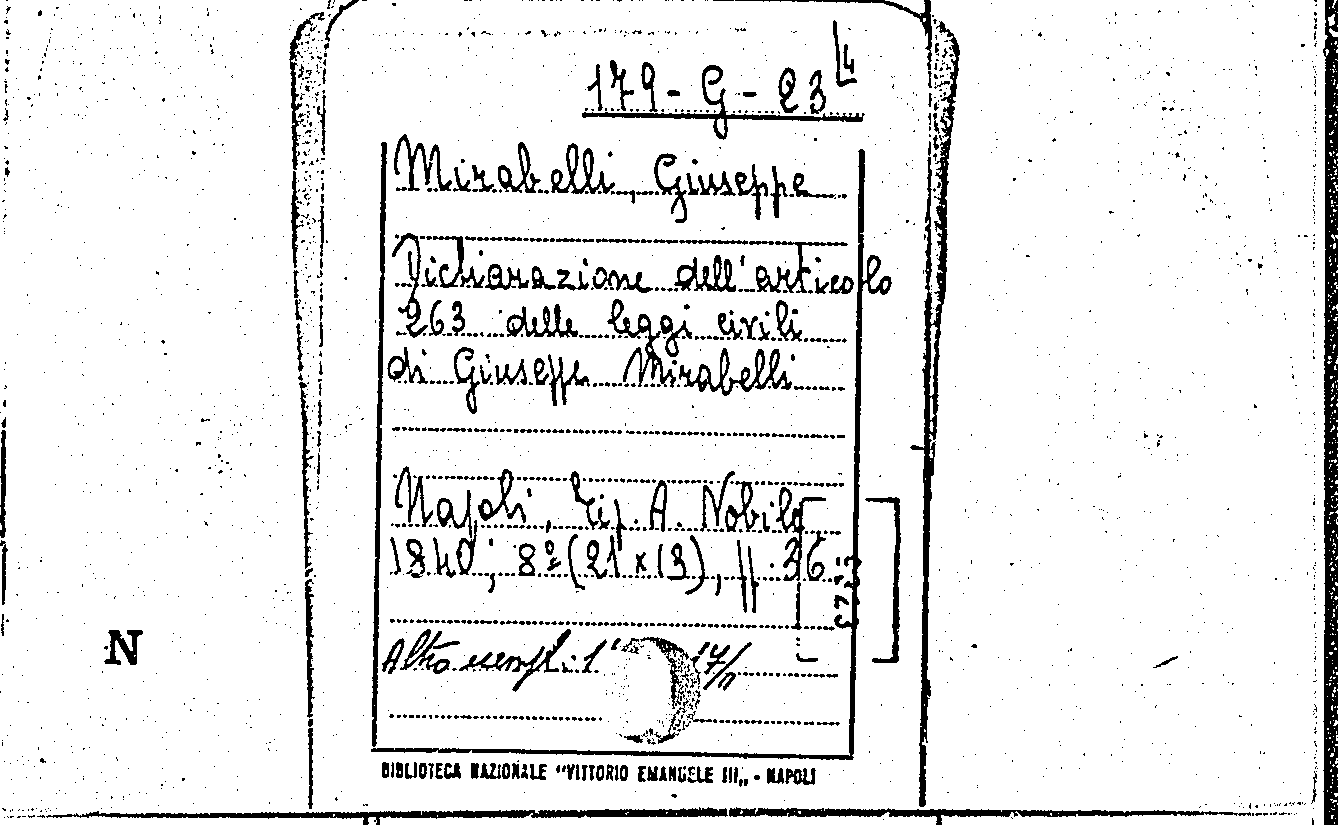 179-G-23 4
Mirabelli, Giuseppe
Dichiarazione dell'articolo
263 delle leggi civili
di Giuseppe Mirabelli
Napoli, Tip. A. Nobile
1840; 8º (21 x 13), pp. 36
Altro esempl.:
N
BIBLIOTECA NAZIONALE "VITTORIO EMANUELE III„ - NAPOLI